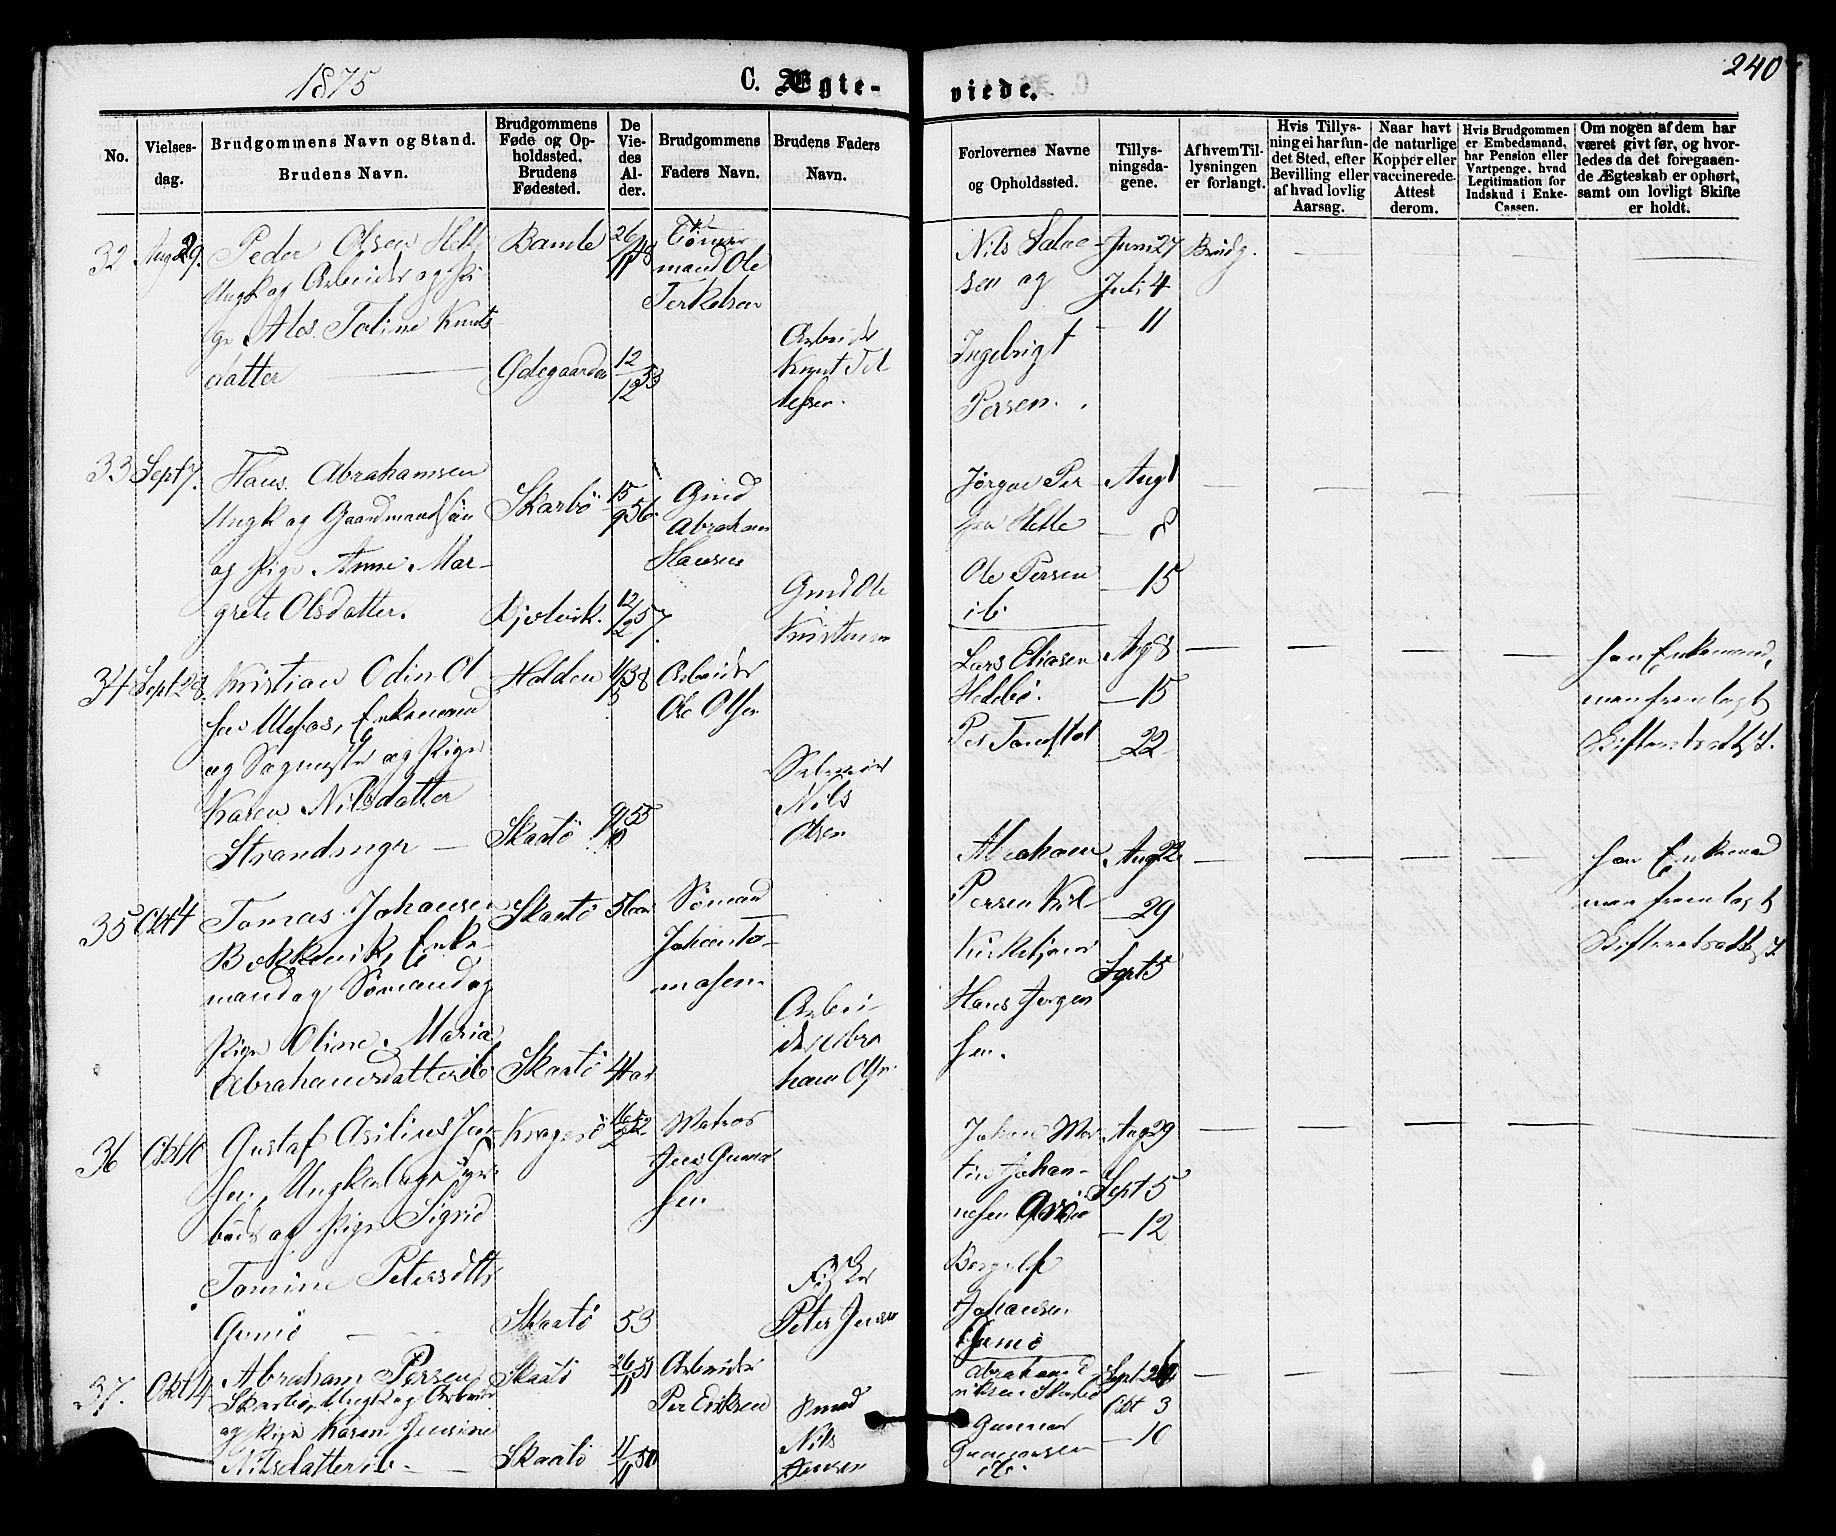 1875
C. Ægte-
viede.
240
No.
Vielses-
dag.
Brudgommens Navn og Stand.
Brudens Navn.
Brudgommens
Føde og Op-
holdssted.
Brudens
Fødested.
De
Vie-
des
Al-
der.
Brudgommens
Faders Navn.
Brudens Faders
Navn.
Forlovernes Navne
og Opholdssted.
Tillys-
ningsda-
gene.
Af hvem Til-
lysningen
er forlangt.
Hvis Tillys-
ning ei har fun-
det Sted, efter
Bevilling eller
af hvad lovlig
Aarsag.
Naar havt
de naturlige
Kopper eller
vaccinerede.
Attest
derom.
Hvis Brudgommen
er Embedsmand,
har Pension eller
Vartpenge, hvad
Legitimation for
Indskud i Enke-
Cassen.
Om nogen af dem har
været givt før, og hvor-
ledes da det foregaaen-
de Ægteskab er ophørt,
samt om lovligt Skifte
er holdt.
32 Aug 29.
Peder Olsen
Ungk og Arbeider og Pi
ge Toline Knuts
datter
Bamle
26/11 48
mand Ole
Terkelsen
12/12 53
Arbeider
Knut Tol
lefsen.
Nils
sen og
Ingebrigt
Persen.
Juni 27
Juli 4
— 11
Brudg.
33 Sept 7.
Hans Abrahamsen
Ungk og Gaardmandssøn
og Pige Anne Mar-
grete Olsdatter.
Skarbø
15/9 56
Gmd
Abraham
Hansen
Kjølvik.
12/2 57.
Gmd Ole
Kristensen
Jørgen Per
sen
Ole Persen
ib
Aug 1
— 8
— 15
34 Sept 28.
Kristian Odin Ol
sen Ulefos, Enkemand
og Sagmester og Pige
Karen Nilsdatter
Strandsnger
Holden
Arbeider
Ole Olsen
Skaatø
Nils
Olsen
Lars Eliasen
Per
Aug 8
— 15
— 22
han Enkemand,
man fremlagt
Skifteretsattest.
35 Okt 4
Tomas Johansen
Enke-
mand og Sømand og
Pige Oline Maria
Abrahamsdatter ib
Skaatø
56 aar
Sømand
Johan To-
masen.
Skaatø
44 aar
Arbei-
der Abra
ham Olsen
Abraham
Persen
Hans Jørgen
sen.
Aug 22
— 29
Sept 5
han Enkemand
man fremlagt
Skifteretsattest.
36 Okt
Gustaf Jen
sen, Ungkarl og
bøder og Pige Sigrid
Tomine Petersdtr
Gumø
Kragerø
Matros
Jens Gunder
sen
Skaatø
53
Fisker
Peter Jensen
Johan Mar
tin Johan-
nesen
Johansen
Gumø
Aug 29
Sept 5
— 12
37. Okt 14
Abraham Persen
Skaatø, Ungk og Arbeider
og Pige Karen Jensine
Nilsdatter ib
Skaatø
26/11 51
Arbeider
Per Eriksen
Skaatø
11/11 50
Smed
Nils
Jensen
Abraham E
riksen Skaatø
Gunnar
ib.
Sept 26
Okt 3
— 10